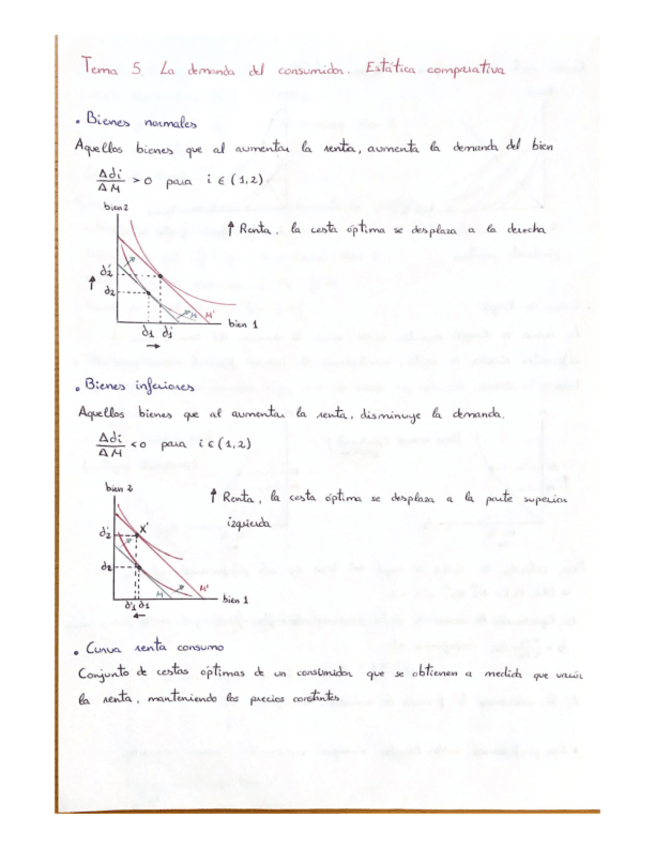 Tema 5. La demanda del consumidor. Estática comparativa
• Bienes normales
Aquellos bienes que al aumentar la renta, aumenta la demanda del bien
Δdi/ΔM > 0 para i ∈ (1,2)
bien 2
↑ Renta, la cesta óptima se desplaza a la derecha
d2'
↑ d2
M M'
bien 1
d1 d1'
→
• Bienes inferiores
Aquellos bienes que al aumentar la renta, disminuye la demanda.
Δdi/ΔM < 0 para i ∈ (1,2)
bien 2
↑ Renta, la cesta óptima se desplaza a la parte superior
izquierda
d2' X'
d2
M M'
bien 1
d'1 d1
←
• Curva renta consumo
Conjunto de cestas óptimas de un consumidor que se obtienen a medida que varía
la renta, manteniendo los precios constantes.